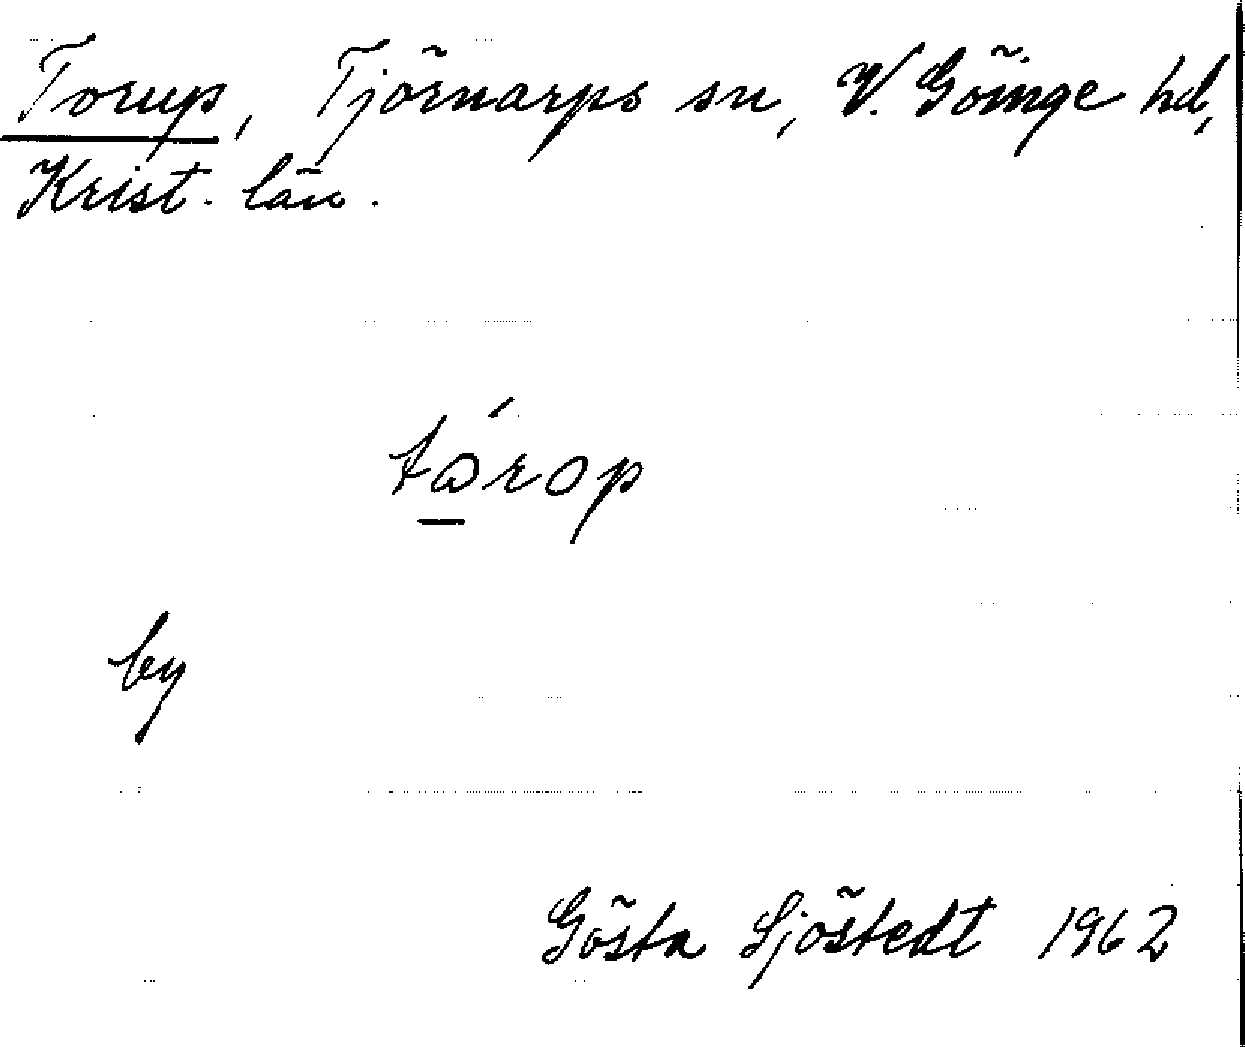 Torup, Tjörnarps sn, V. Göinge hd,
Krist. län.
tώrop
by
Gösta Sjöstedt 1962